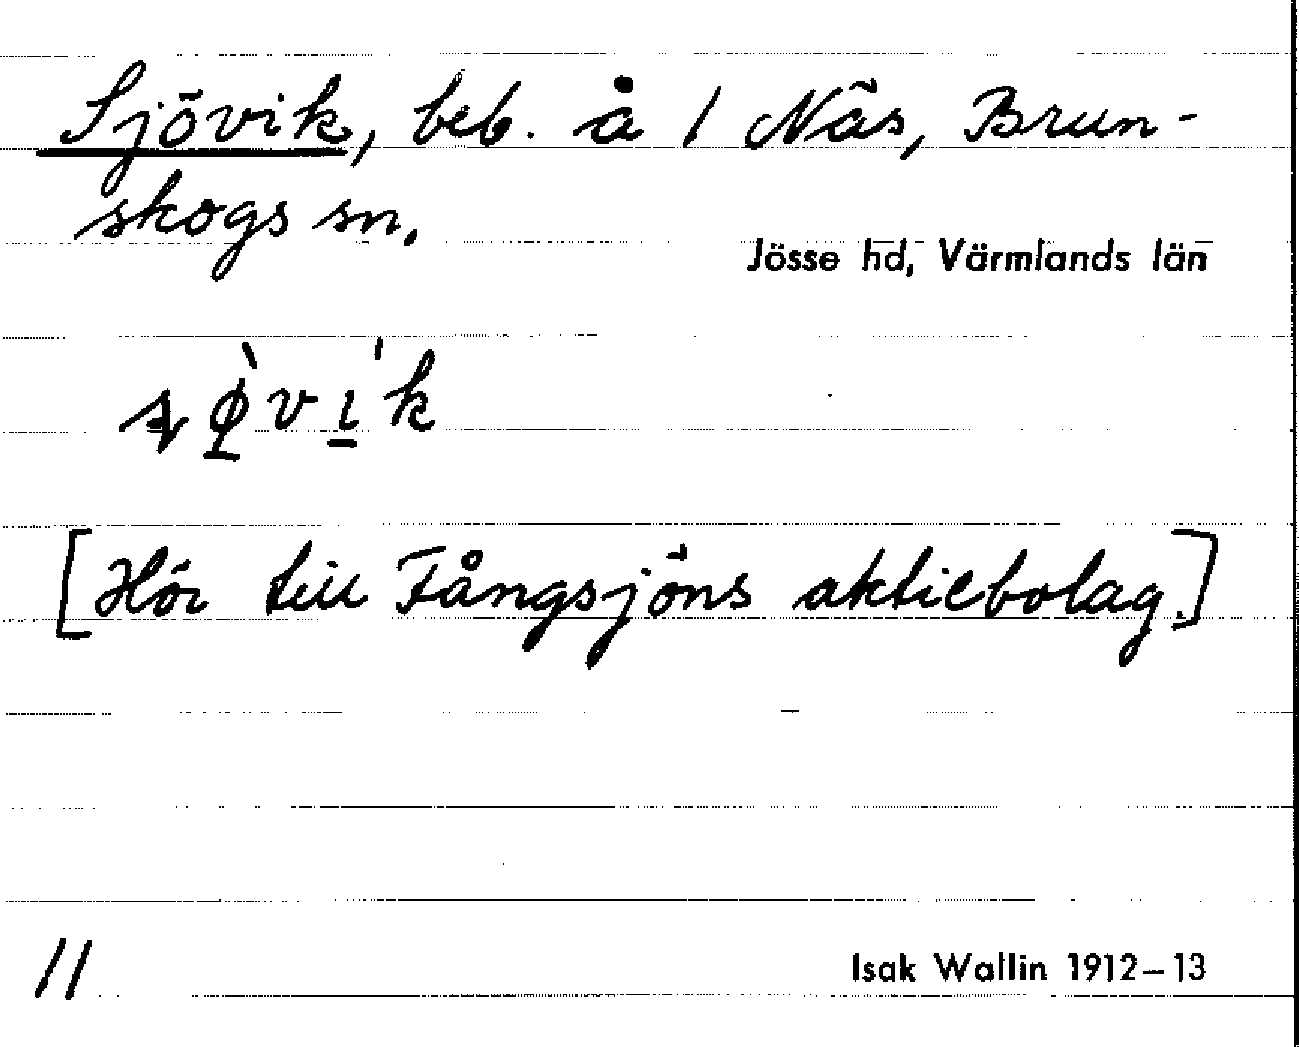 Sjövik, beb. å 1 Näs, Brun-
skogs sn.
Jösse hd, Värmlands län
[Hör till Fångsjöns aktiebolag.]
11
Isak Wallin 1912–13